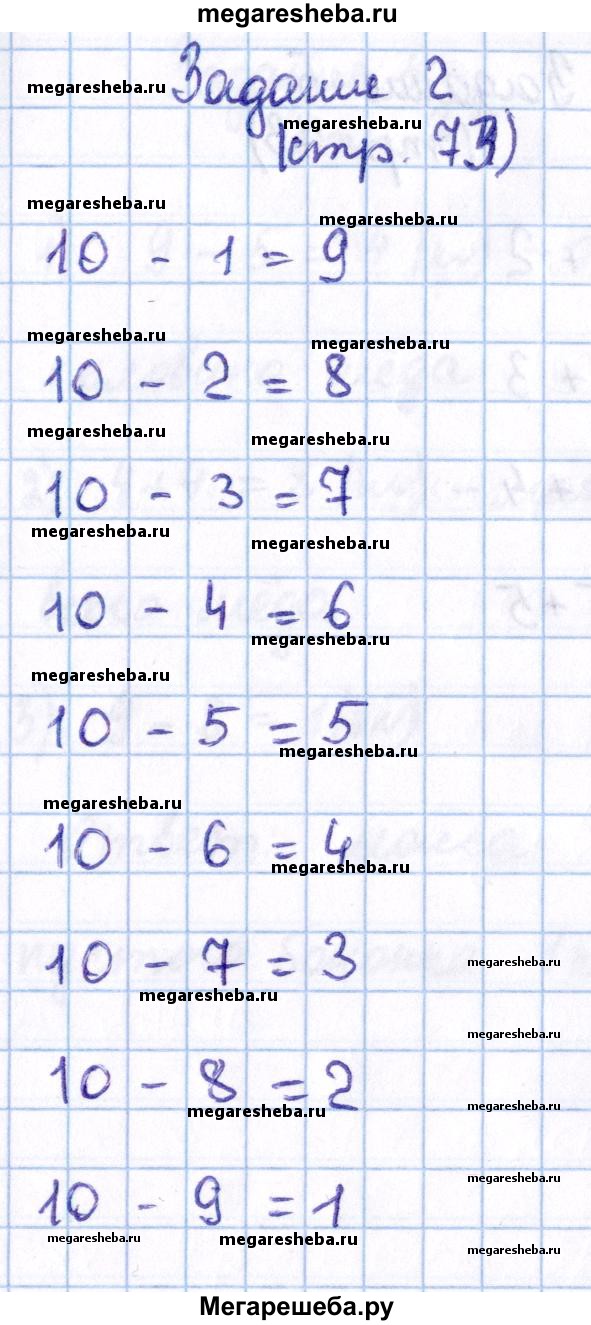 megaresheba.ru
megaresheba.ru
Задание 2
megaresheba.ru
(стр. 73)
megaresheba.ru
megaresheba.ru
10 - 1 = 9
megaresheba.ru
megaresheba.ru
10 - 2 = 8
megaresheba.ru
megaresheba.ru
10 - 3 = 7
megaresheba.ru
megaresheba.ru
10 - 4 = 6
megaresheba.ru
megaresheba.ru
10 - 5 = 5
megaresheba.ru
megaresheba.ru
10 - 6 = 4
megaresheba.ru
10 - 7 = 3
megaresheba.ru
megaresheba.ru
megaresheba.ru
10 - 8 = 2
megaresheba.ru
megaresheba.ru
megaresheba.ru
10 - 9 = 1
megaresheba.ru
megaresheba.ru
megaresheba.ru
Мегарешеба.ру